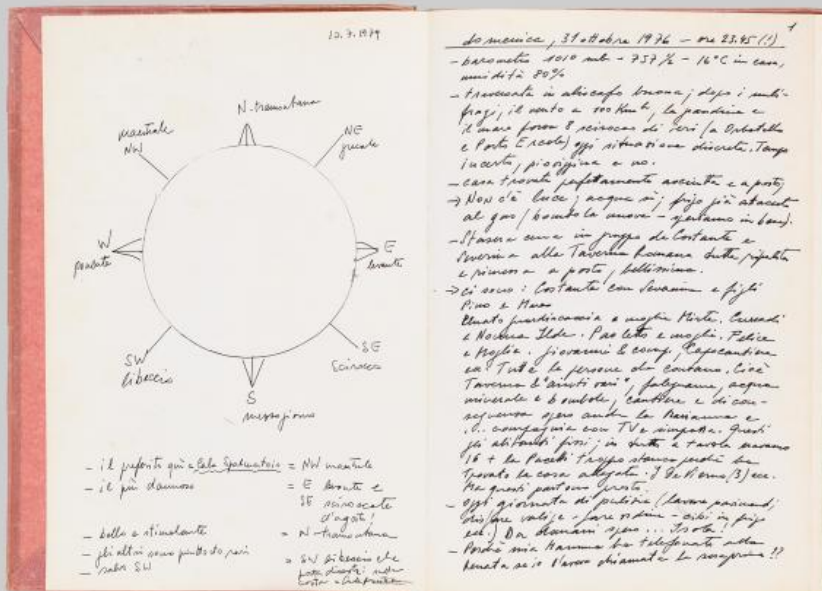 12.7.1979
N-tramontana
maestrale
NW
NE
grecale
W
ponente
E
levante
SW
libeccio
SE
Scirocco
S
mezzogiorno
- il preferito qui a Cala Spalmatoio = NW maestrale
- il più dannoso = E levante e
SE sciroccate
d'agosto!
- bello e stimolante = N-tramontana
- gli altri sono piuttosto rari
- salvo SW = SW libeccio che
1
domenica, 31 ottobre 1976 - ore 23.45 (!)
- barometro 1010 mb - 757 % - 16°C in casa,
umidità 80%
- traversata in aliscafo buona; dopo i nubi-
fragi, il vento a 100 Kmh, la grandine e
il mare forza 8 scirocco di ieri (a Orbetello
e Porto Ercole) oggi situazione discreta. Tempo
incerto, pioviggina e no.
- casa trovata perfettamente asciutta e a posto,
→ Non c'è luce; acqua sì; frigo già attaccato
al gas (bombola nuova - speriamo in bene).
- Stasera cena in gruppo da Costante e
Severina alla Taverna Romana tutta ripulita
e rimessa a posto, bellissima.
→ ci sono: Costante con Severina e figli
Pino e Marco
guardiacaccia e moglie Mirte.
e Nonna Ilda. Paoletto e moglie. Felice
e moglie. Giovanni & comp. Capocantiere
ecc. Tutte le persone che contano. Cioè
Taverna & "aiuti vari", falegname, acqua
minerale e bombole, cantiere e di con-
seguenza spero anche la Marianna e
compagnia con TV e simpatia. Questi
gli abitanti fissi; in tutto a tavola eravamo
16 + la Pucetti troppo stanca perché ha
trovato la casa allagata.
Ma questi partono presto.
- oggi giornata di pulizia (lavare pavimenti,
disfare valige - fare ordine - cibi in frigo
ecc.) Da domani spero ... Isola!
- Perché mia Mamma ha telefonato alla
Renata se io l'avevo chiamata la sera prima !?